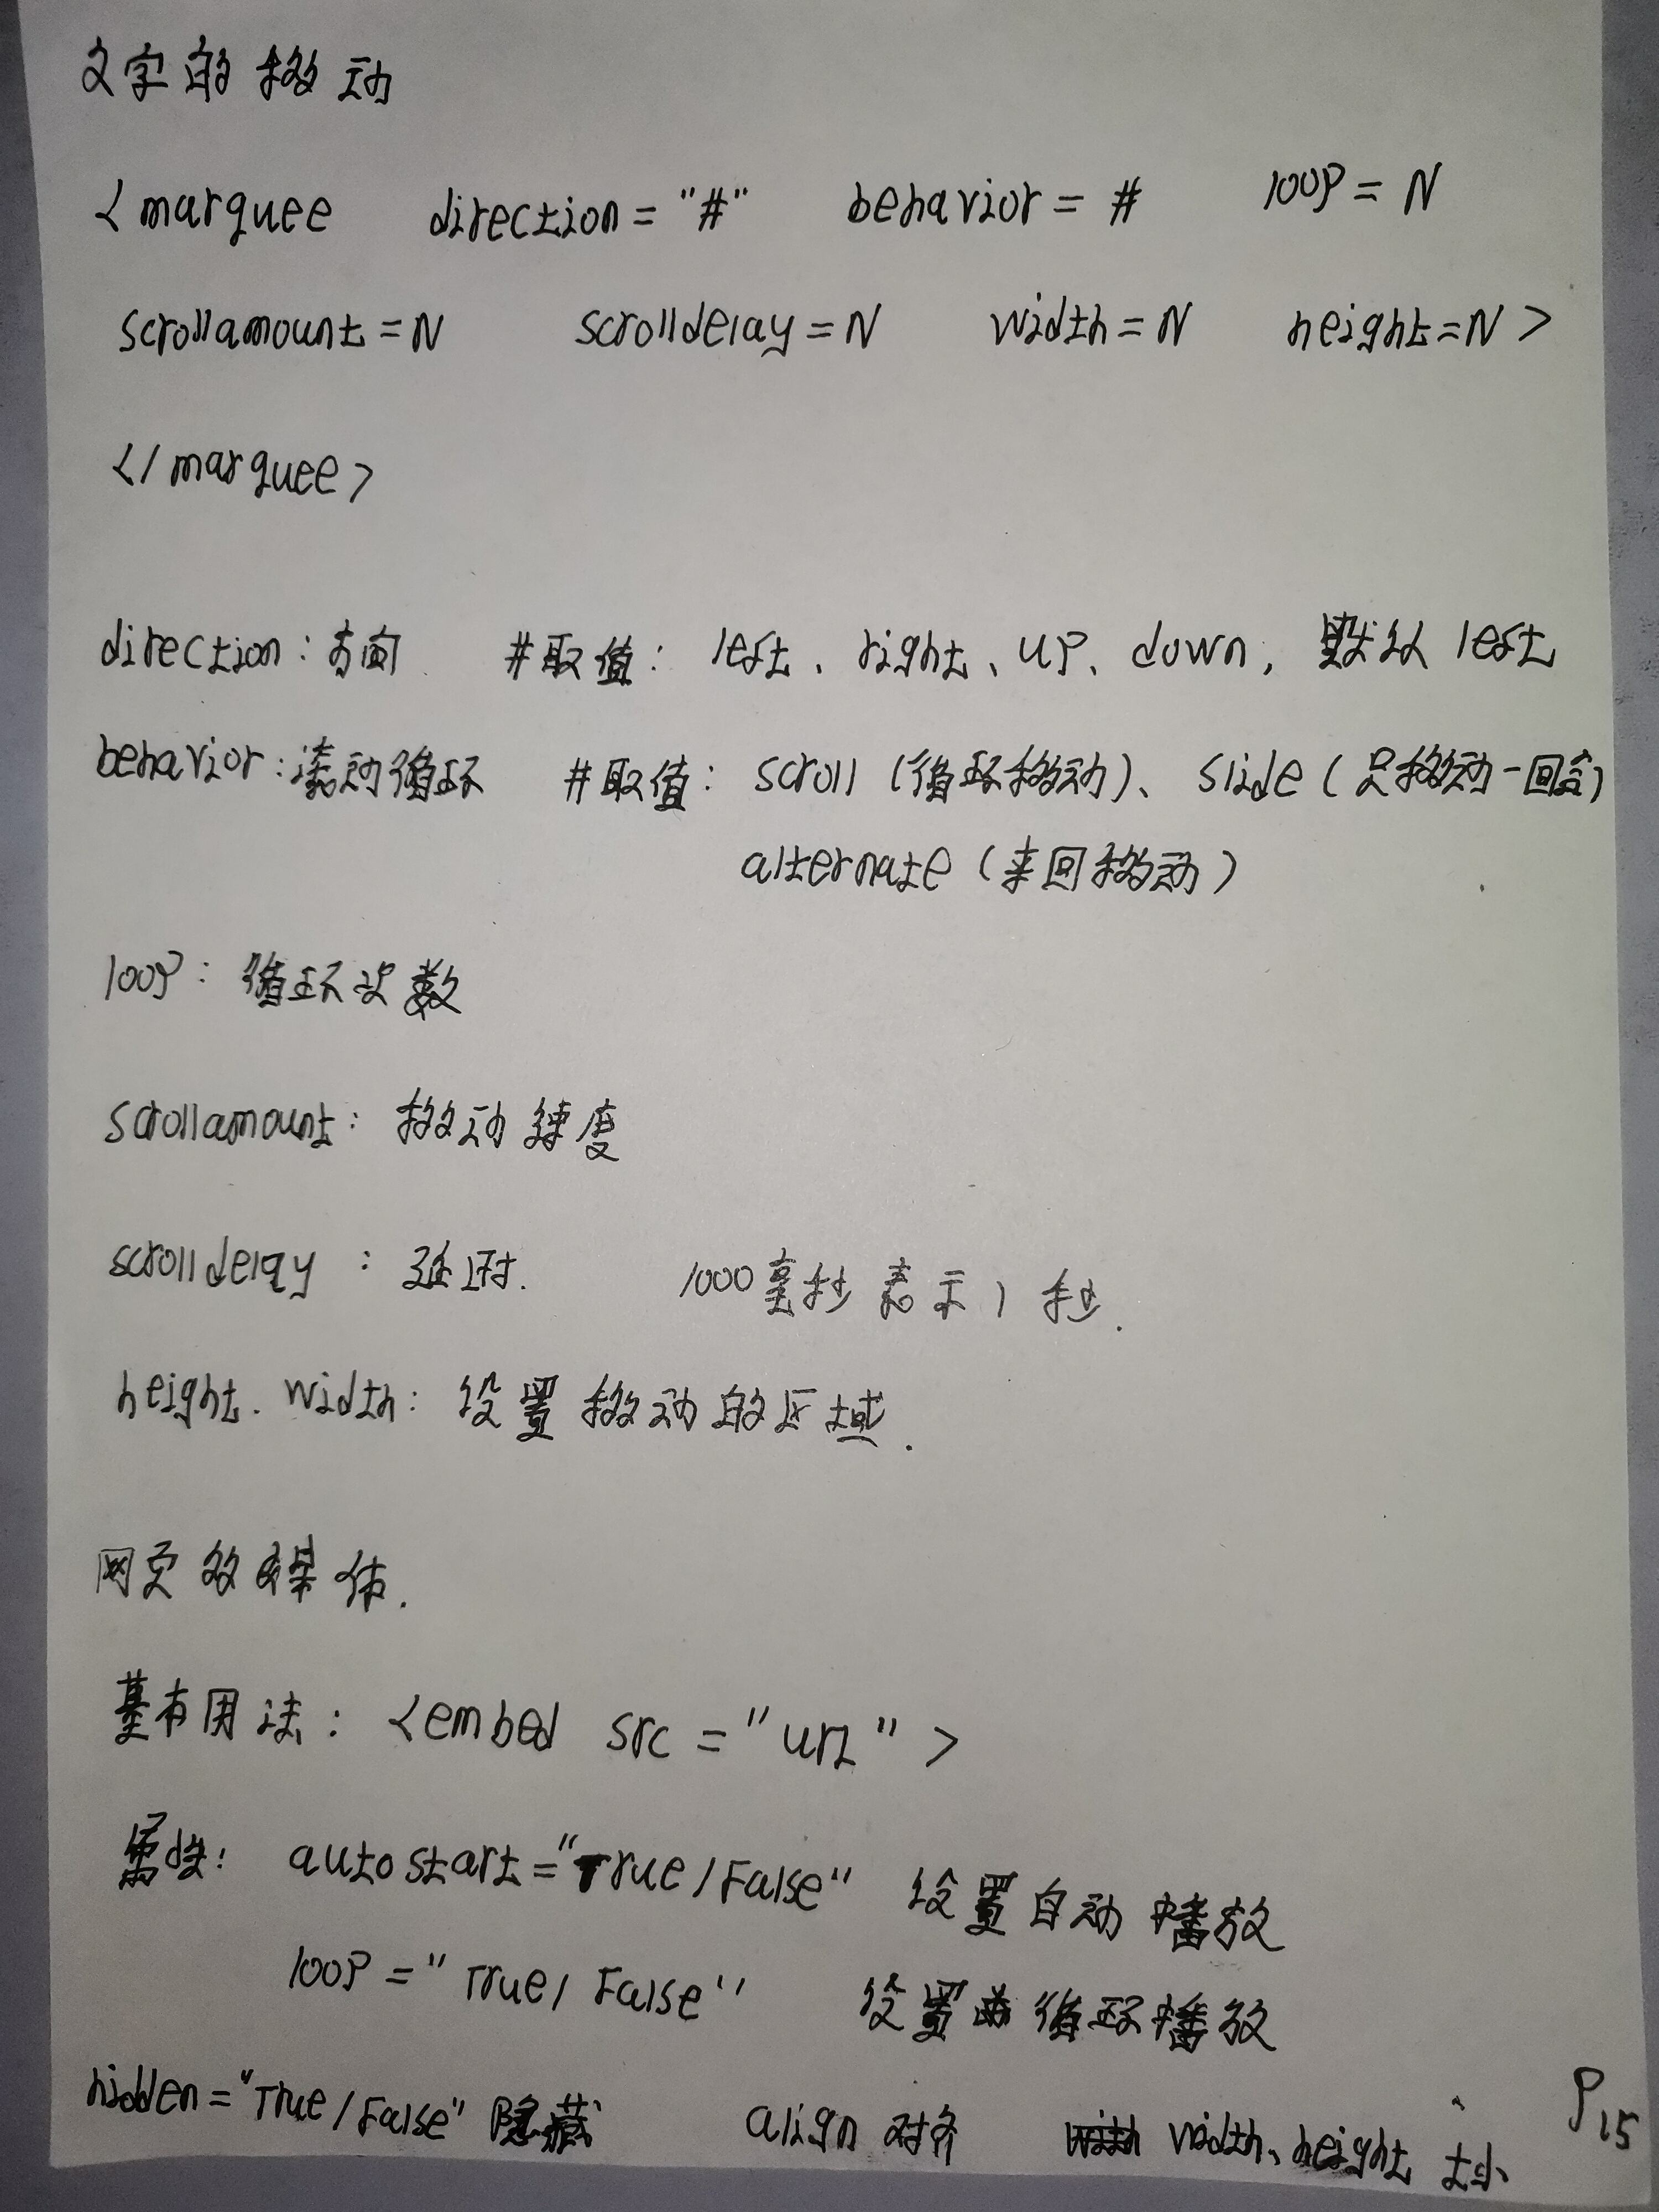 文字的移动
<marquee direction="#" behavior=# loop=N
scrollamount=N scrolldelay=N width=N height=N>
</marquee>
direction:方向 #取值: left、right、up、down, 默认 left
behavior:滚动循环 #取值: scroll (循环移动)、slide (只移动一回合)
alternate (来回移动)
loop: 循环次数
scrollamount: 移动速度
scrolldelay : 延时. 1000毫秒表示1秒.
height. width: 设置移动的区域.
网页多媒体.
基本用法: <embed src="url">
属性: autostart="True/False" 设置自动播放
loop="True/False" 设置循环播放
hidden="True/False" 隐藏 align 对齐 width、height 大小
P15